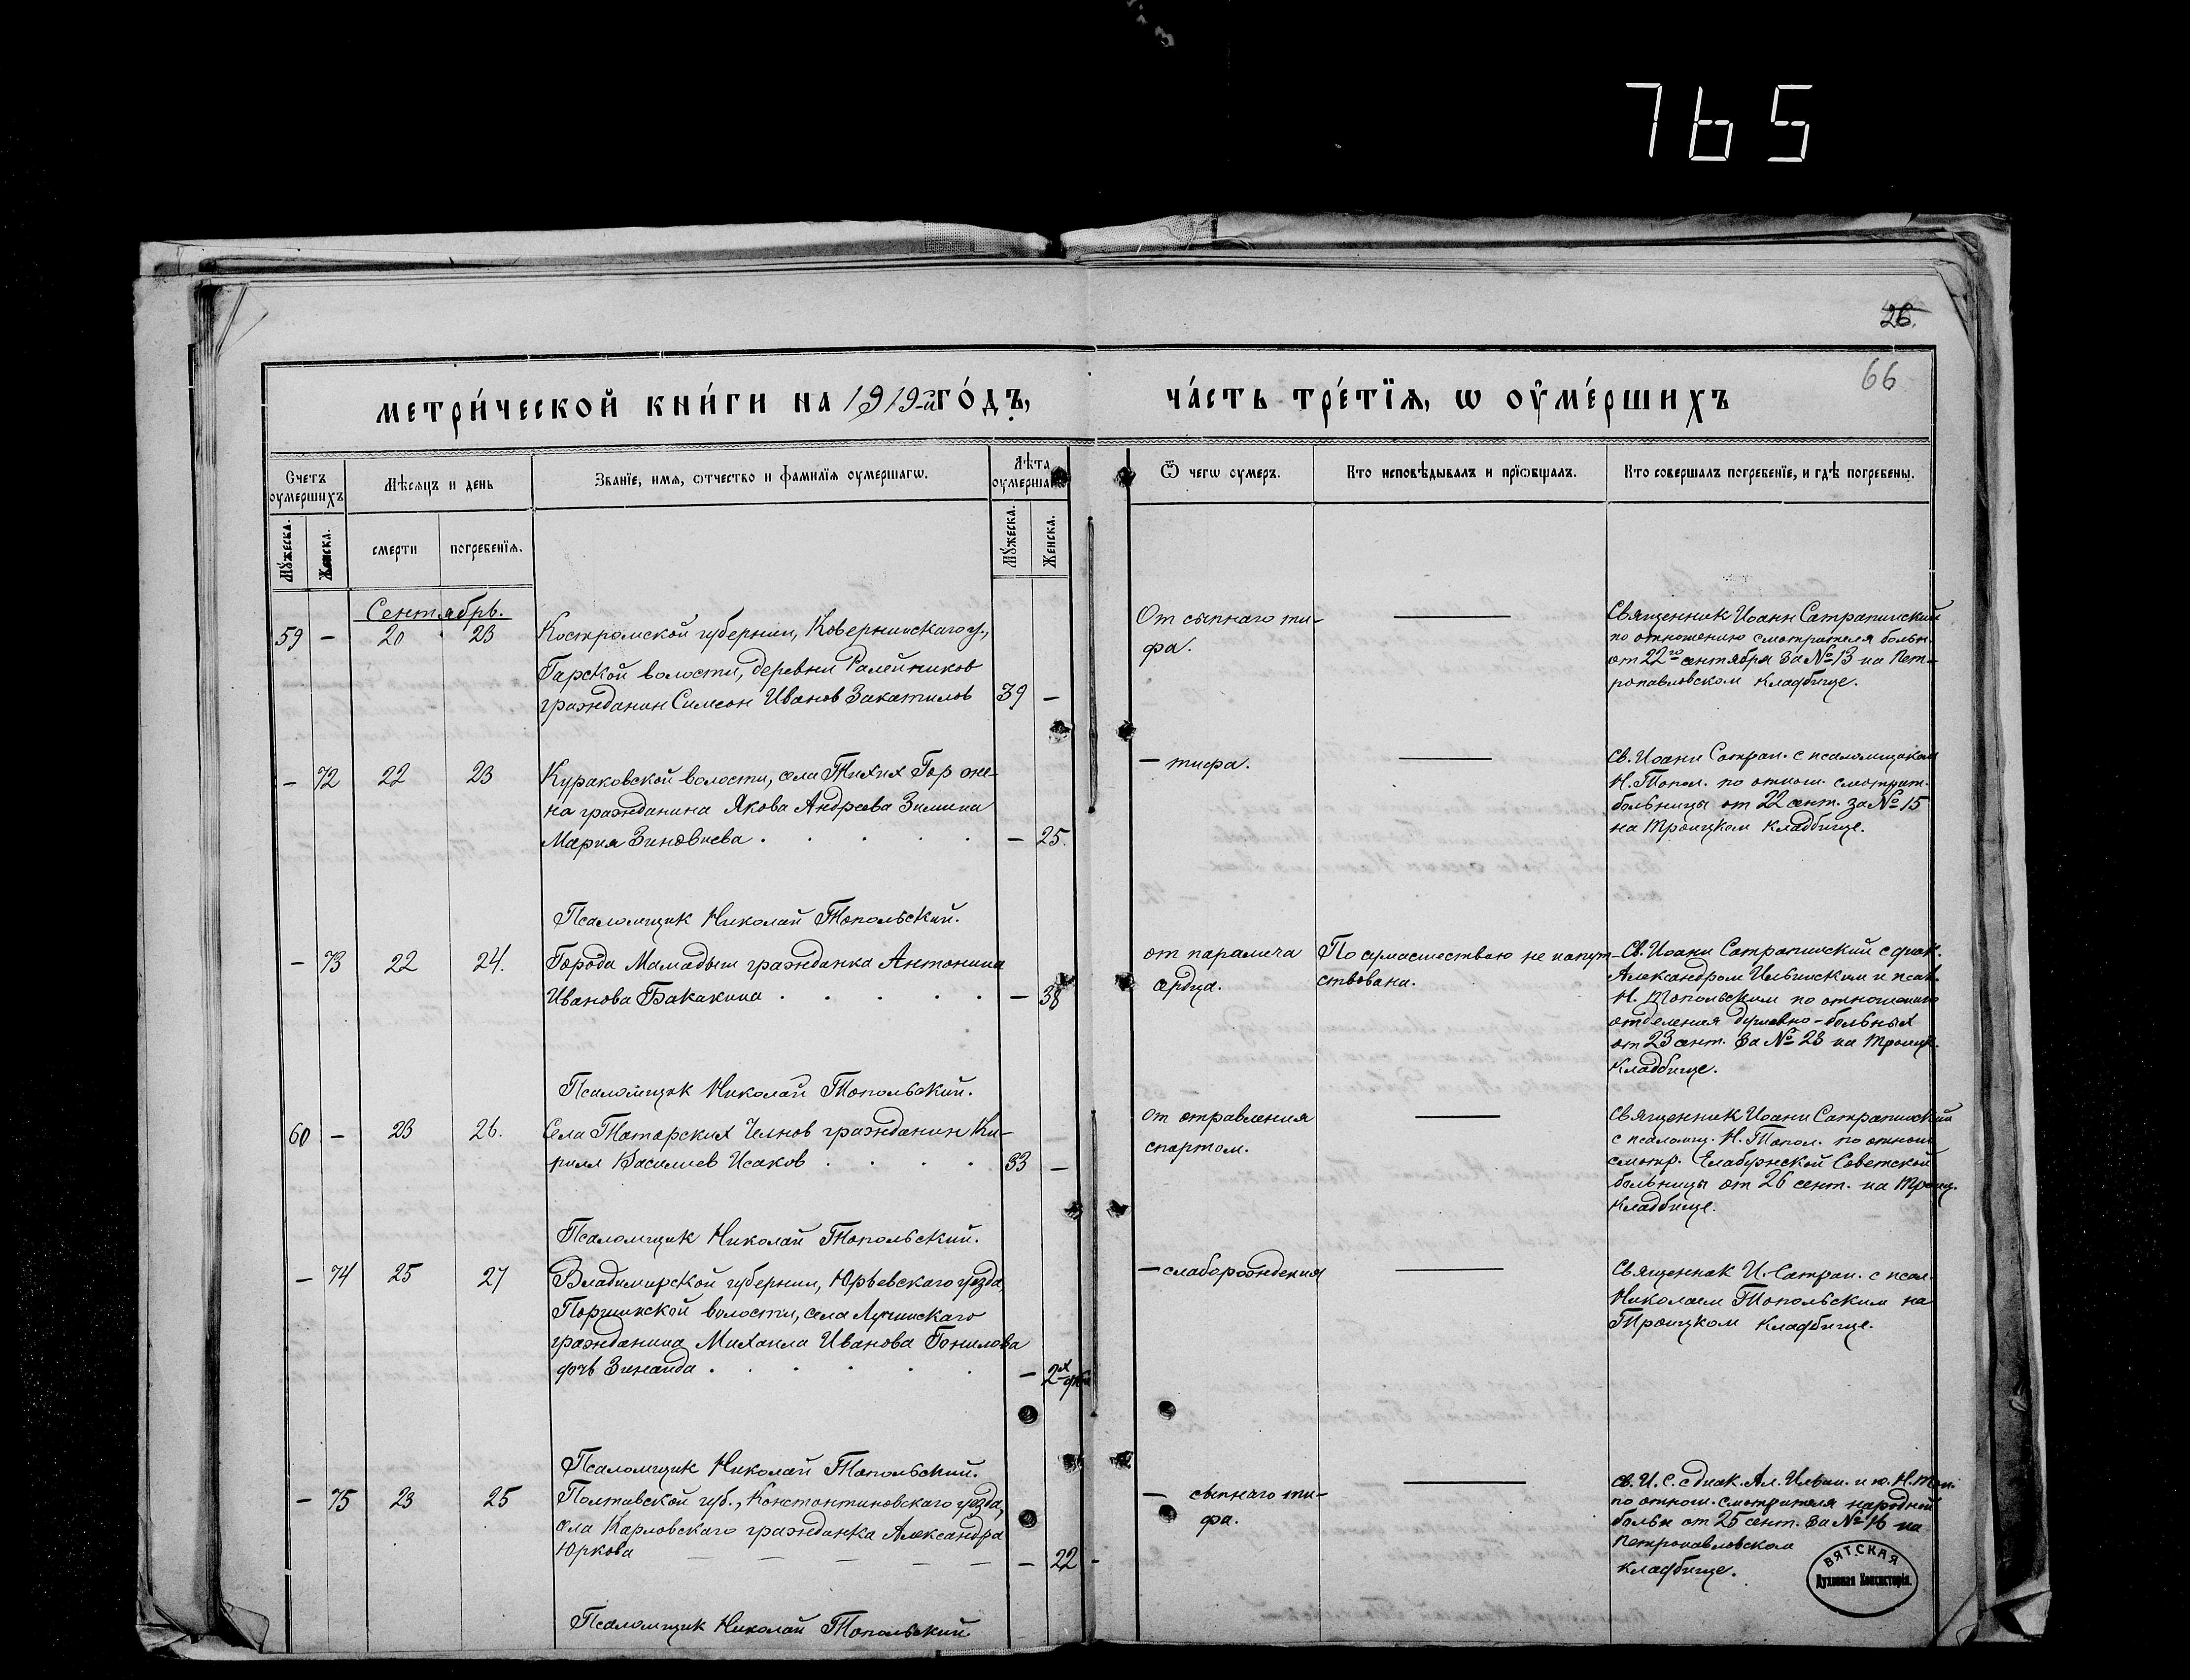 765
26.
66
МЕТРИ́ЧЕСКОЙ КНИ́ГИ НА 1919-й ГО́ДЪ,
ЧА́СТЬ ТРЕ́ТЇѦ, Ѡ ОУ҆МЕ́РШИХЪ
Счетъ оумершихъ
Мѣсѧцъ и день
Званїе, имѧ, ѿчество и фамилїѧ оумершагѡ.
Лѣта оумершагѡ
Ѿ чегѡ оумеръ.
Кто исповѣдывалъ и прїѡбщалъ.
Кто совершалъ погребенїе, и гдѣ погребены.
Мꙋжеска.
Женска.
смерти
погребенїѧ.
Мꙋжеска.
Женска.
Сентябрь.
59 — 20 23
Костромской губернии, Ковернинскаго у.,
Гарской волости, деревни Ралейников
гражданин Симеон Иванов Закатилов 39 —
От сыпнаго ти-
фа.
—
Священник Иоанн Сатрапинский
по отношению смотрителя больн.
от 22го сентября за № 13 на Пет-
ропавловском кладбище.
— 72 22 23
Кураковской волости, села Тихих Гор же-
на гражданина Якова Андреева Зимина
Мария Зиновиева . . . . . — 25.
— тифа.
—
Св. Иоанн Сатрап. с псаломщиком
Н. Топол. по отнош. смотрит.
больницы от 22 сент. за № 15
на Троицком кладбище.
Псаломщик Николай Топольский.
— 73 22 24.
Города Мамадыш гражданка Антонина
Иванова Бакакина . . . . . — 38
от паралича
сердца.
По сумасшествию не напут-
ствована.
Св. Иоанн Сатрапинский с диак.
Александром Ильинским и псал.
Н. Топольским по отношению
отделения душевно-больных
от 23 сент. за № 23 на Троицк.
кладбище.
Псаломщик Николай Топольский.
60 — 23 26.
Села Татарских Челнов гражданин Ки-
рилл Василиев Исаков . . . . 33 —
от отравления
спиртом.
—
Священник Иоанн Сатрапинский
с псаломщ. Н. Топол. по отнош.
смотр. Елабужской Советской
больницы от 26 сент. на Троиц.
кладбище.
Псаломщик Николай Топольский.
— 74 25 27
Владимирской губернии, Юрьевскаго уезда,
волости, села Лучинскаго
гражданина Михаила Иванова
дочь Зинаида . . . . . — 2х дней
— слаборождения
—
Священник И. Сатрап. с псал.
Николаем Топольским на
Троицком кладбище.
Псаломщик Николай Топольский.
— 75 23 25
Полтавской губ., Константиновскаго уезда,
села Карловскаго гражданка Александра
Юркова — — — — — — 22 -
— сыпнаго ти-
фа.
—
Св. И. С. с диак. Ал. Ильин. и Н. Топ.
по отнош. смотрителя народной
больн от 25 сент. за № 16 на
Петропавловском
кладбище.
ВЯТСКАЯ
Духовная Консисторія.
Псаломщик Николай Топольский